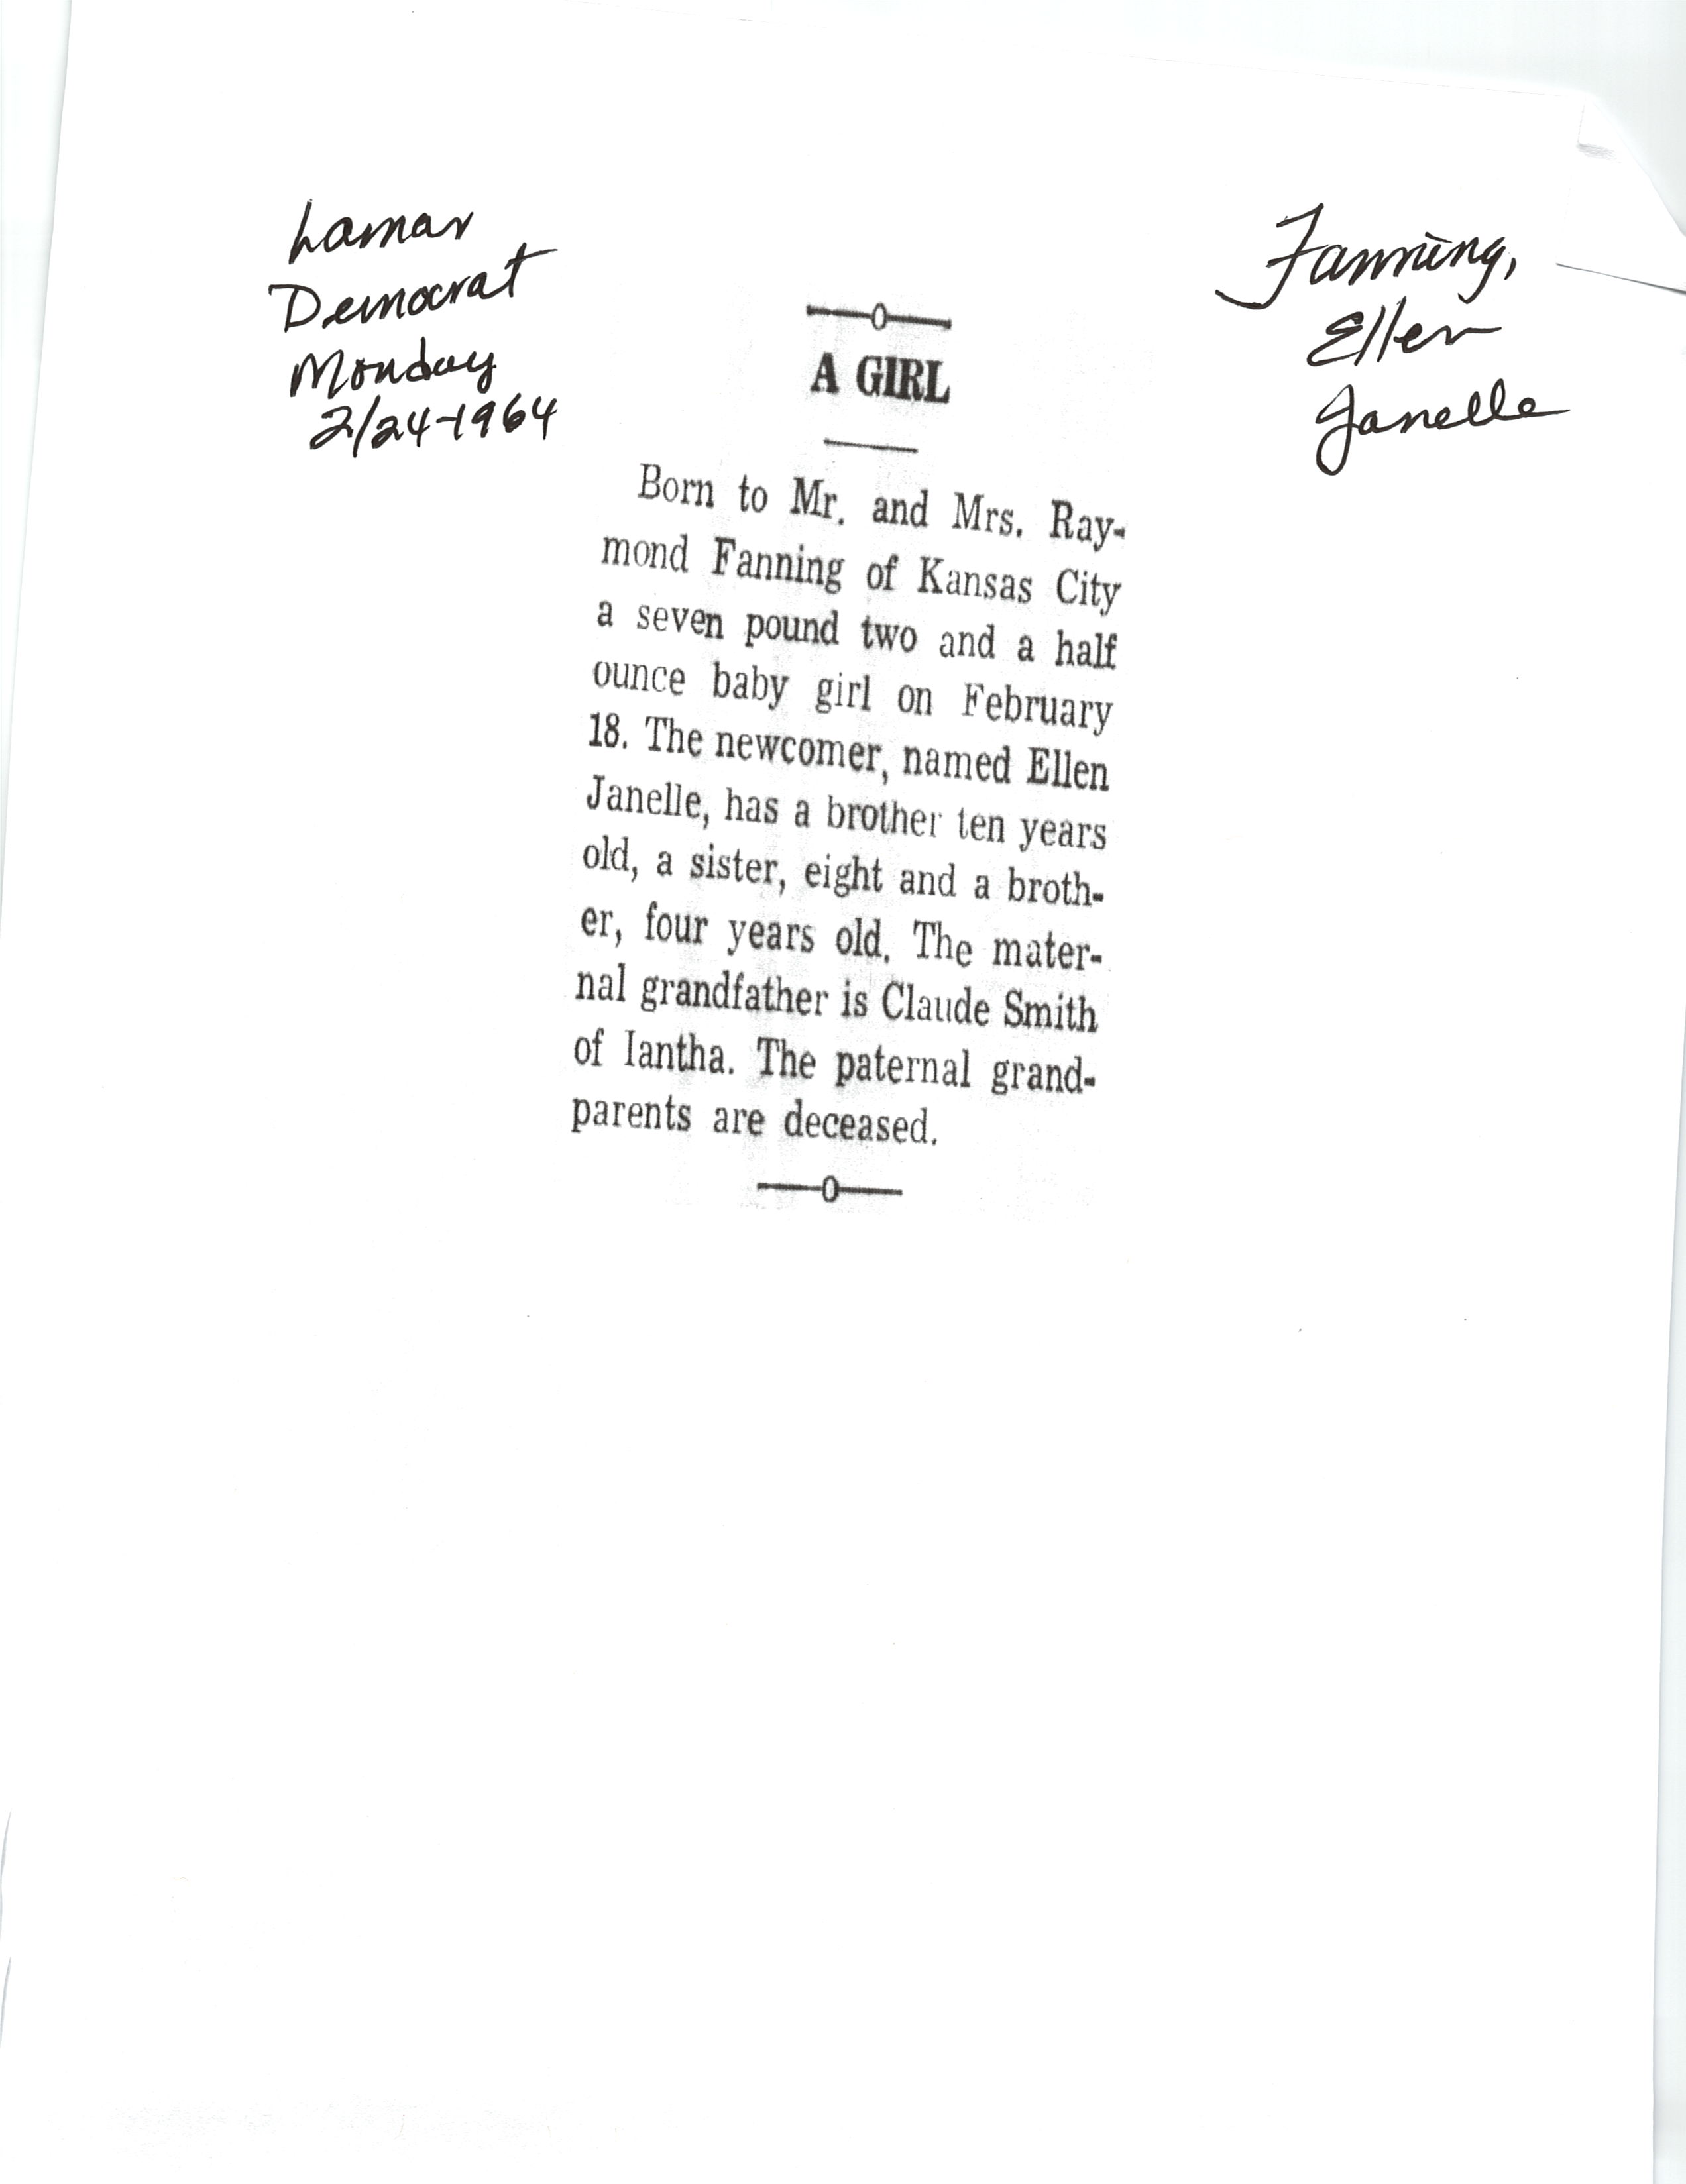 Lamar
Democrat
Monday
2/24-1964
Fanning,
Ellen
Janelle
A GIRL
Born to Mr. and Mrs. Ray-
mond Fanning of Kansas City
a seven pound two and a half
ounce baby girl on February
18. The newcomer, named Ellen
Janelle, has a brother ten years
old, a sister, eight and a broth-
er, four years old. The mater-
nal grandfather is Claude Smith
of Iantha. The paternal grand-
parents are deceased.